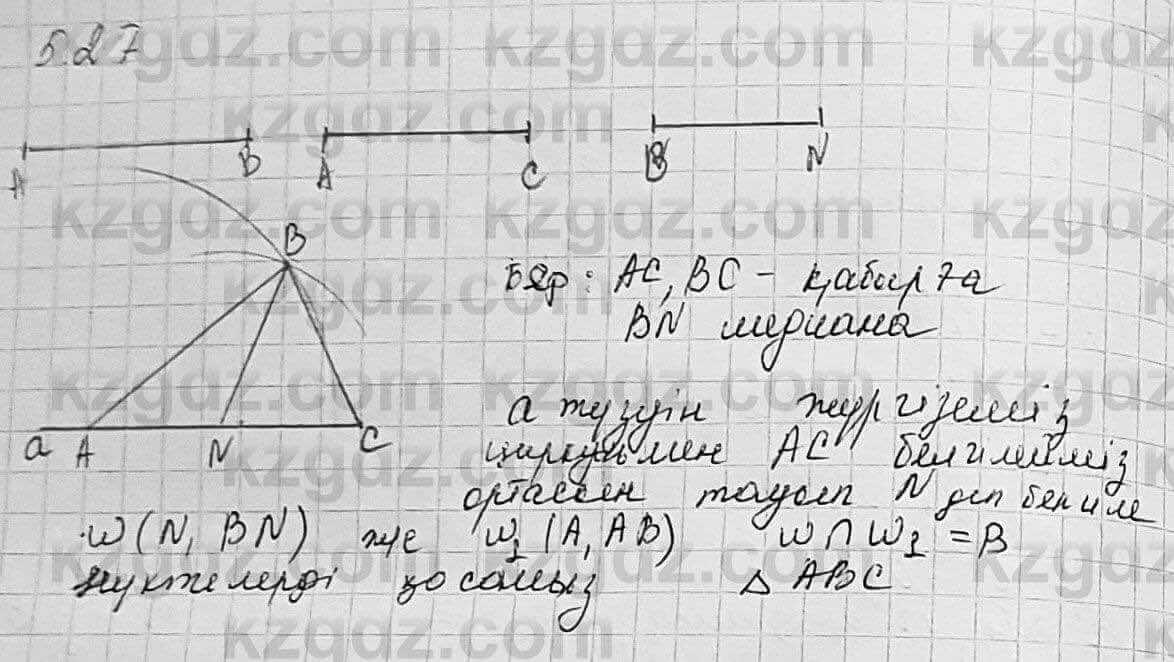 5.27
A B A C B N
B
a A N C
Бер: AC, BC - қабырға
BN медиана
а түзуін жүргіземіз
циркульмен AC белгілейміз
ортасын тауып N деп белгіле
w(N, BN) же w₁(A, AB) w∩w₁ = B
нүктелерді қосамыз △ABC
kzgdz.com